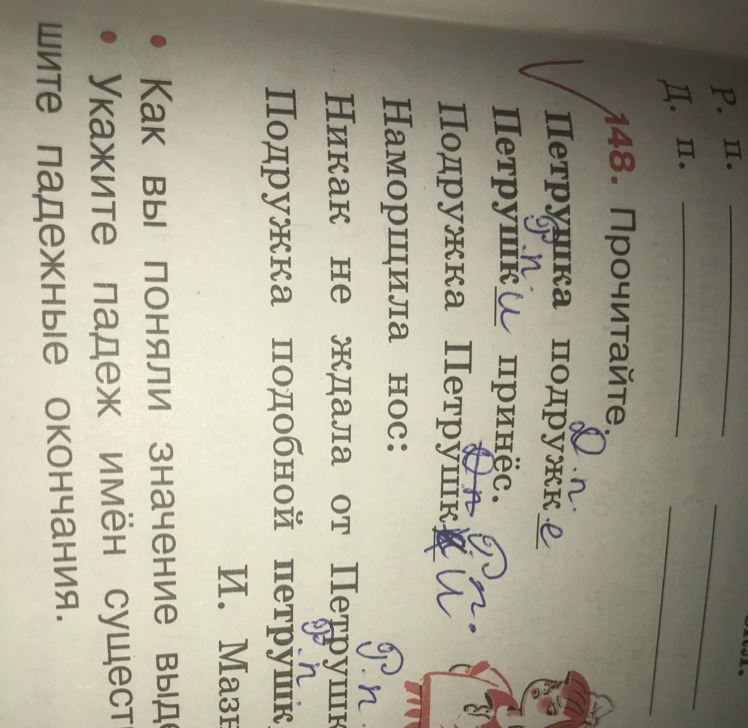 Р. п.
Д. п.
148. Прочитайте.
Д. п.
Петрушка подружке
Р. п.
Петрушки принёс.
Д п Р. п.
Подружка Петрушки
Наморщила нос:
Р. п
Никак не ждала от Петрушк
Р. п
Подружка подобной петрушк
И. Мазн
• Как вы поняли значение выде
• Укажите падеж имён сущест
шите падежные окончания.